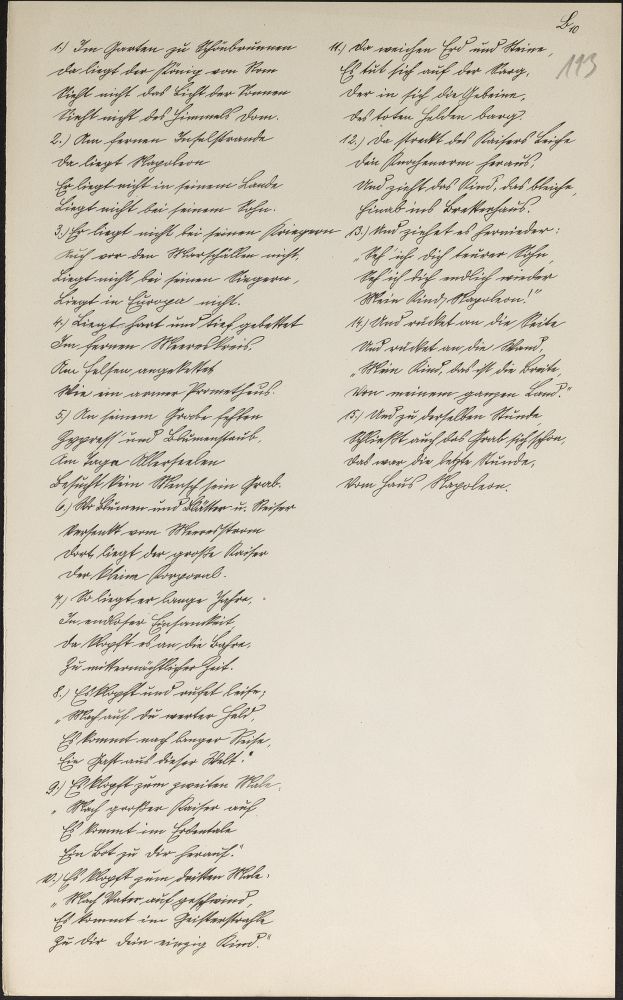 B10
113
1.) Im Garten zu Schönbrunnen
Da liegt der König von Rom
Sieht nicht das Licht der Sonnen
Sieht nicht des Himmels Dom.
2.) Am fernen Inselstrande
Da liegt Napoleon
Er liegt nicht in seinem Lande
Liegt nicht bei seinem Sohn.
3.) Er liegt nicht bei seinen Kriegern
Auch vor den Marschällen nicht,
Liegt nicht bei seinen Siegern,
Liegt in Europa nicht.
4.) Liegt hart und tief gebettet
Im fernen Meereskreis.
Am Felsen angekettet
Wie ein armer Prometheus.
5.) An seinem Grabe fehlen
Zypress' und Blumenstaub,
Am Tage Allerseelen
Besucht kein Mensch sein Grab.
6.) Wo Blumen und Blätter u. Reiser
Versenkt vom Meeresstrom
Dort liegt der große Kaiser
Der kleine Korporal.
7.) So liegt er lange Jahre,
In endloser Einsamkeit,
Da klopft es an die Bahre,
Zu mitternächtlicher Zeit.
8.) Es klopft und rufet leise;
"Mach auf du werter Held,
Es kommt nach langer Reise,
Ein Gast aus dieser Welt."
9.) Es klopft zum zweiten Male.
"Mach großer Kaiser auf
Es kommt im Erdentale
Ein Bot zu dir herauf."
10.) Es klopft zum dritten Male:
"Mach Vater auf geschwind,
Es kommt im Geisterstrahle
Zu dir dein einzig Kind."
11.) Da weichen Erd und Steine,
Es tut sich auf der Sarg,
Der in sich die Gebeine,
Des toten Helden barg.
12.) Da streckt des Kaisers Leiche
Den Knochenarm heraus,
Und zieht das Kind, das bleiche,
Hinab ins Bretterhaus.
13.) Und ziehet es hernieder:
"Seh' ich dich teurer Sohn,
Seh ich dich endlich wieder
Mein Kind, Napoleon!"
14.) Und rücket an die Seite
Und rücket an die Wand,
"Mein Kind, das ist die Breite,
Von meinem ganzen Land."
15.) Und zu derselben Stunde
Schließt auch das Grab sich schon,
Das war die letzte Stunde,
Vom Haus Napoleon.